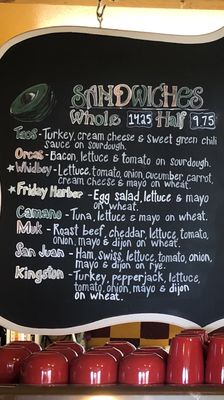 SANDWICHES
Whole 14.25 Half 9.75
Taos - Turkey, cream cheese & Sweet green chili
sauce on sourdough.
Orcas - Bacon, lettuce & tomato on sourdough.
* Whidbey - Lettuce, tomato, onion, cucumber, carrot,
cream cheese & mayo on wheat.
* Friday Harbor - Egg salad, lettuce & mayo
on wheat.
Camano - Tuna, lettuce & mayo on wheat.
Muk - Roast Beef, cheddar, lettuce, tomato,
onion, mayo & dijon on wheat.
San Juan - Ham, Swiss, lettuce, tomato, onion,
mayo & dijon on rye.
Kingston - Turkey, pepperjack, lettuce,
tomato, onion, mayo & dijon
on wheat.